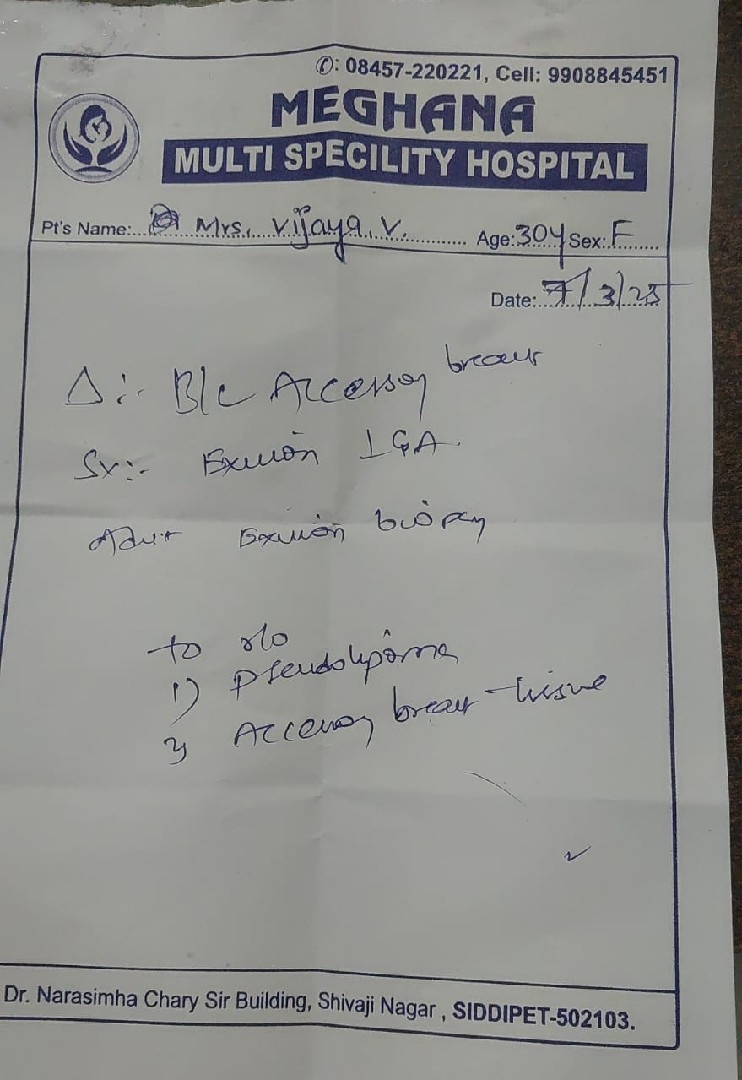 ✆: 08457-220221, Cell: 9908845451
MEGHANA
MULTI SPECILITY HOSPITAL
Pt's Name: Mrs. Vijaya. V. Age: 30y Sex: F
Date: 7/3/25
Δ:- B/L Accessory breast
Sx:- Excision
Advit Excision biopsy
to r/o
1) Pseudolipoma
2) Accessory breast tissue
Dr. Narasimha Chary Sir Building, Shivaji Nagar, SIDDIPET-502103.